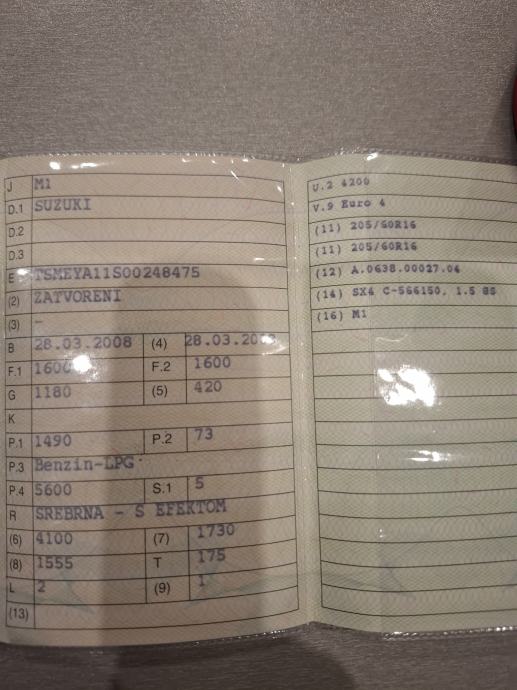 J M1
D.1 SUZUKI
D.2
D.3
E TSMEYA11S00248475
(2) ZATVORENI
(3) -
B 28.03.2008 (4) 28.03.2008
F.1 1600 F.2 1600
G 1180 (5) 420
K
P.1 1490 P.2 73
P.3 Benzin-LPG
P.4 5600 S.1 5
R SREBRNA - S EFEKTOM
(6) 4100 (7) 1730
(8) 1555 T 175
L 2 (9) 1
(13)
U.2 4200
V.9 Euro 4
(11) 205/60R16
(11) 205/60R16
(12) A.0638.00027.04
(14) SX4 C-566150, 1.5 GS
(16) M1